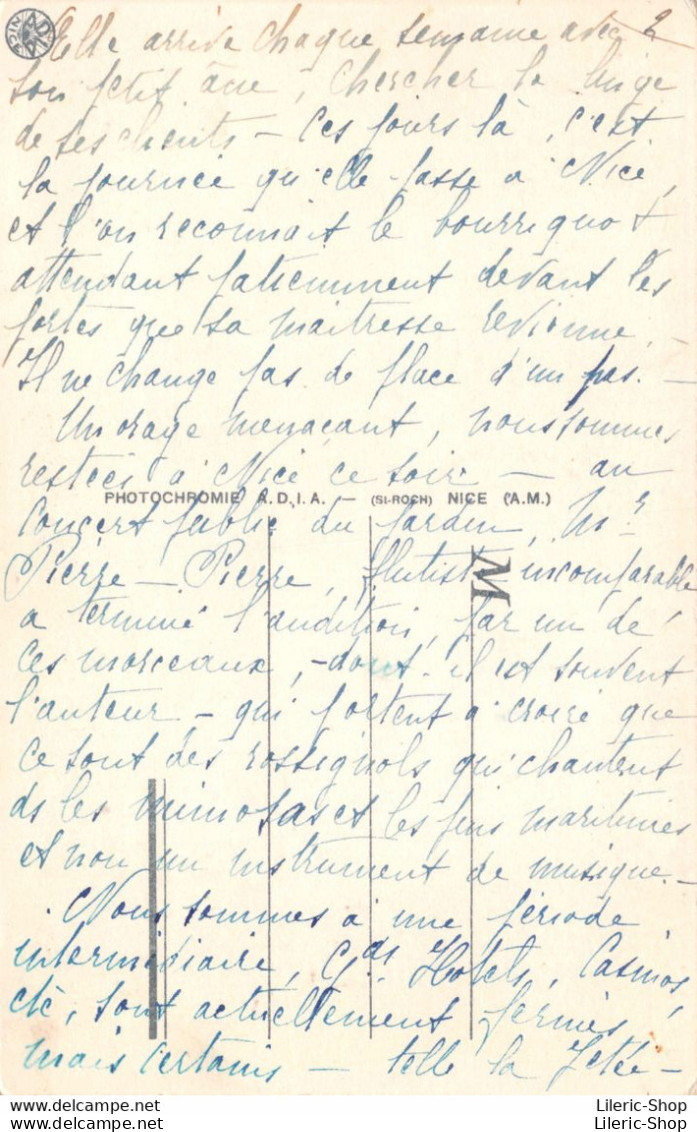 ADIA NICE
Elle arrive chaque semaine avec 2
son petit âne, chercher le linge
de ses clients — Ces jours là, c'est
la journée qu'elle passe à Nice,
et l'on reconnait le bourriquot
attendant patiemment devant les
portes que sa maitresse revienne. —
Il ne change pas de place d'un pas. —
Un orage menaçant, nous sommes
restées à Nice ce soir — au
PHOTOCHROMIE A.D.I.A. — (St-ROCH) NICE (A.M.)
concert public du jardin, Mr
Pierre — Pierre, flutiste incomparable
M
a terminé l'audition, par un de
ces morceaux, — dont il est souvent
l'auteur — qui portent à croire que
ce sont des rossignols qui chantent
ds les mimosas et les pins maritimes
et non un instrument de musique. —
Nous sommes à une période
intermédiaire, Gds Hotels, Casinos,
etc, sont actuellement fermés
mais certains — telle la Jetée —
Lileric-Shop
Lileric-Shop